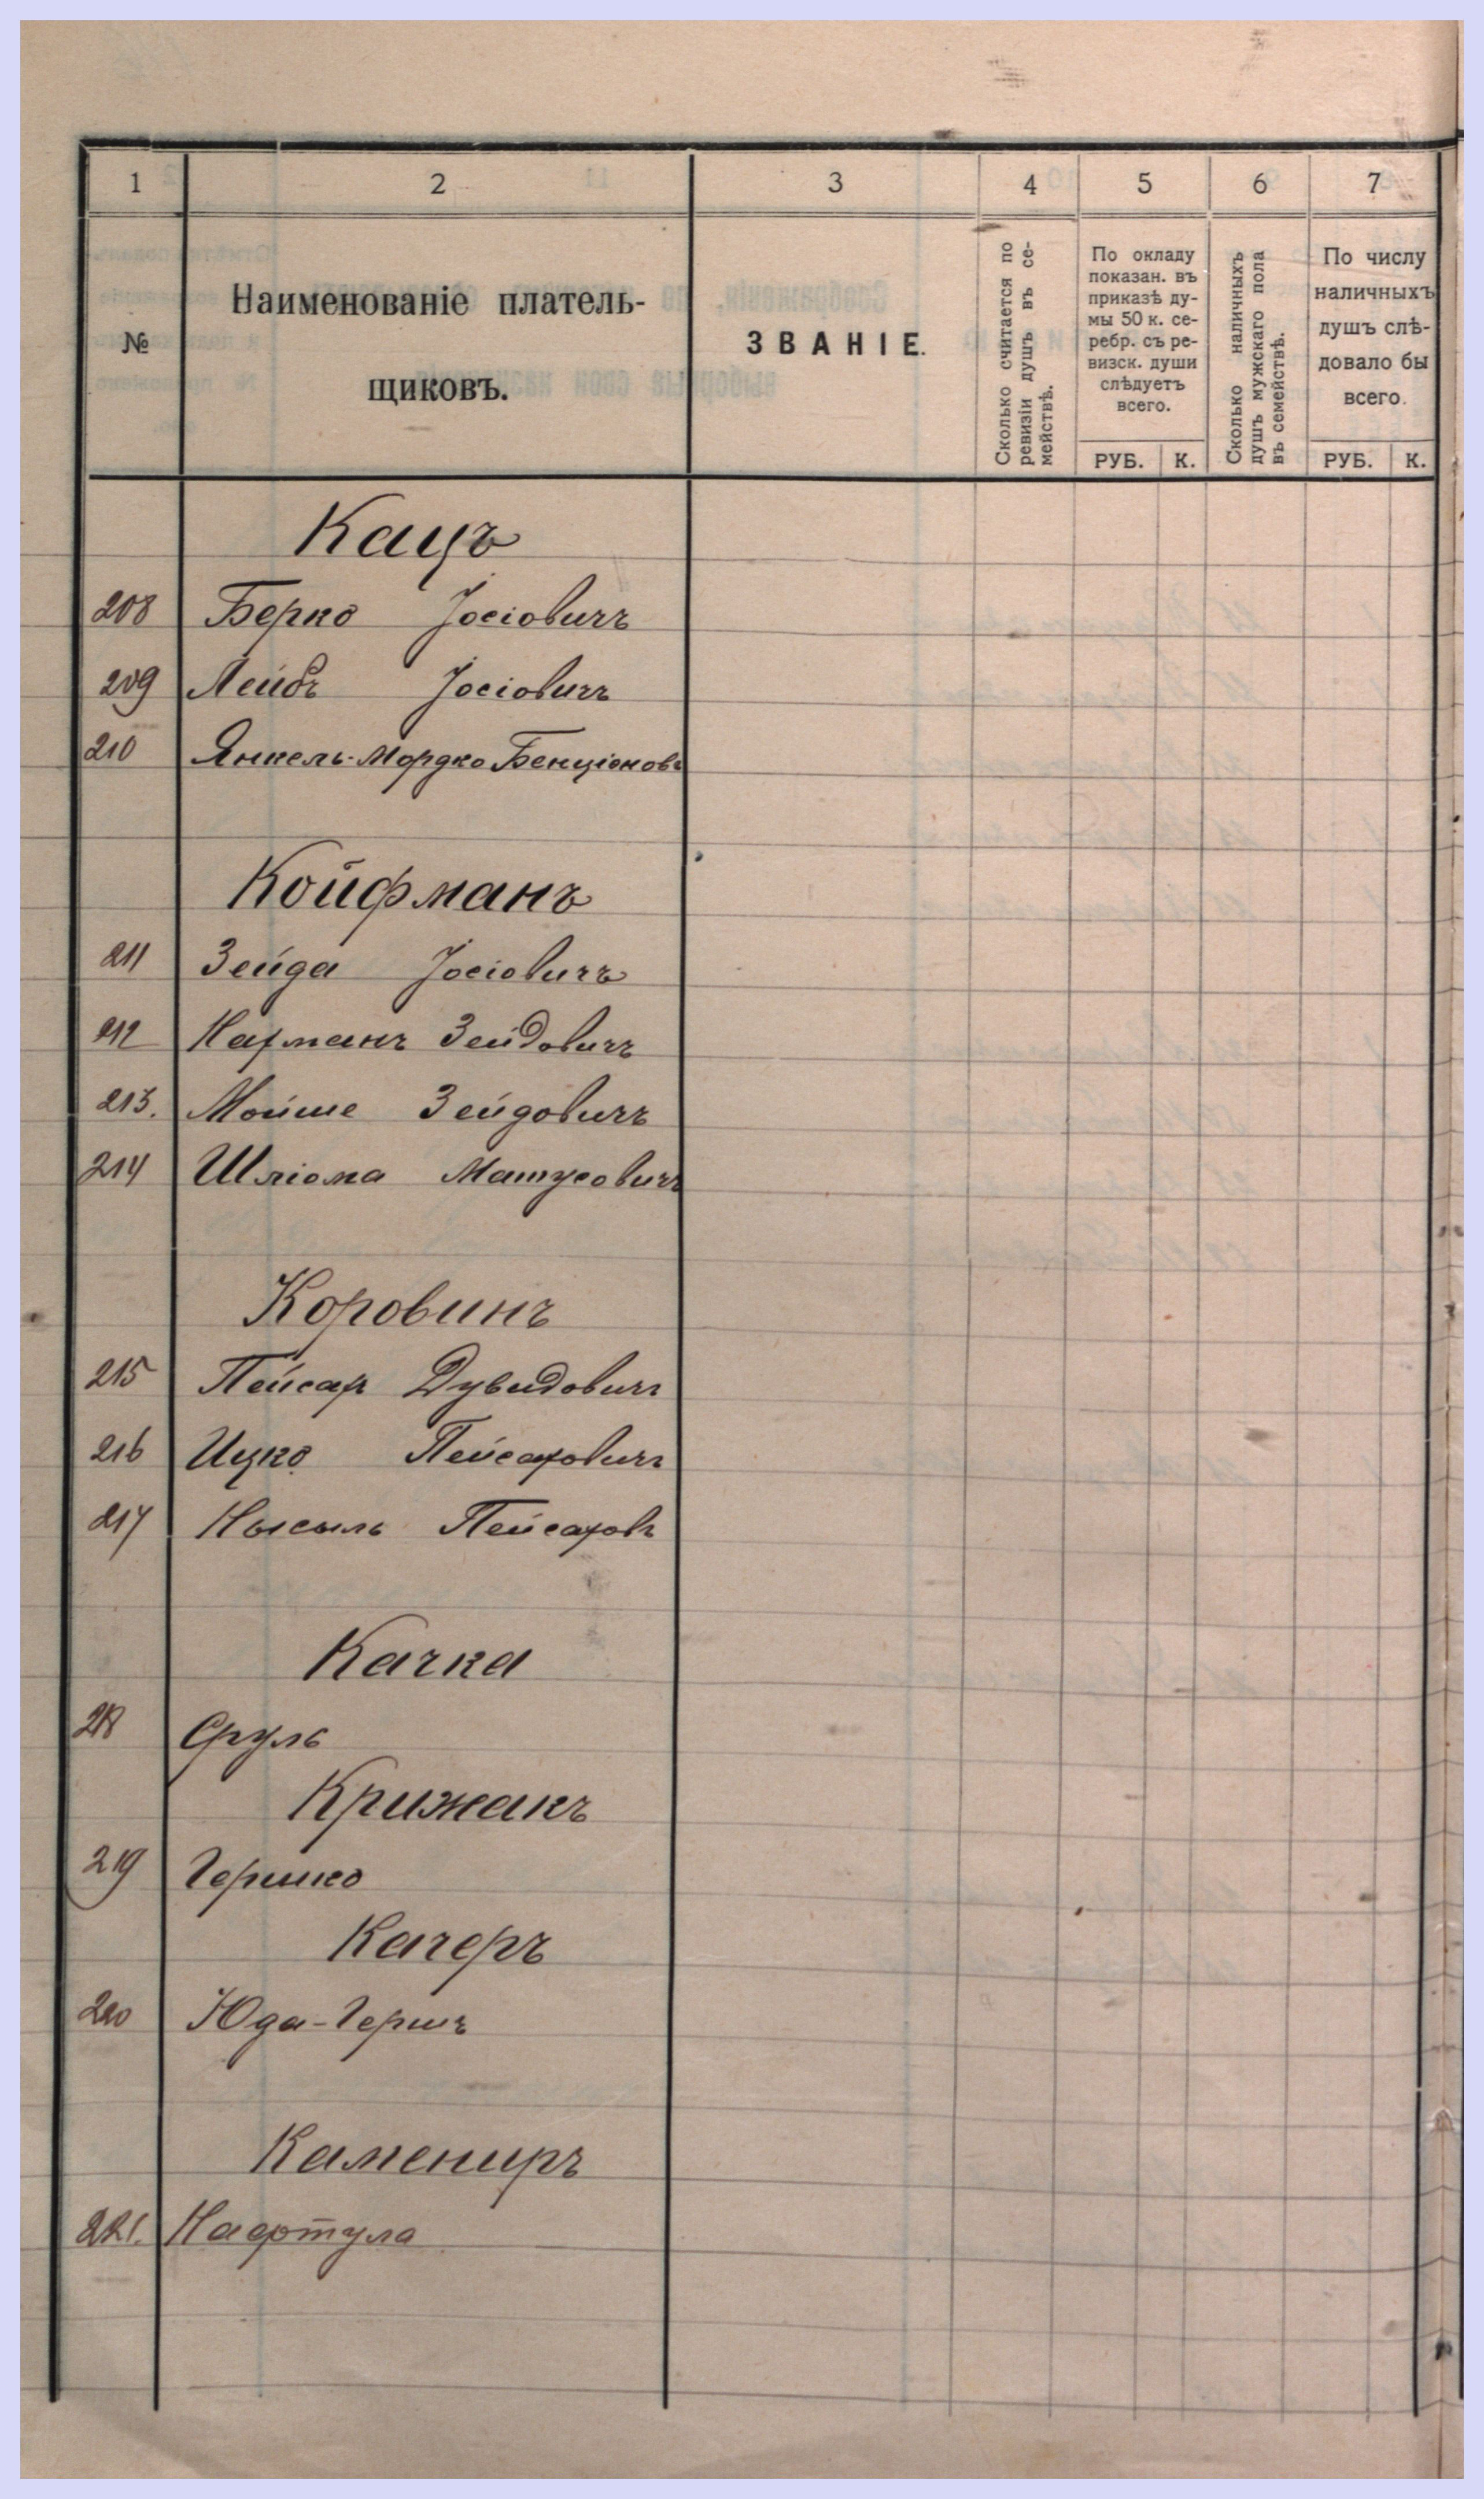 1 2 3 4 5 6 7
№
Наименованіе платель-
щиковъ.
ЗВАНІЕ.
Сколько считается по
ревизіи душъ въ се-
мействѣ.
По окладу
показан. въ
приказѣ ду-
мы 50 к. се-
ребр. съ ре-
визск. души
слѣдуетъ
всего.
РУБ. К.
Сколько наличныхъ
душъ мужскаго пола
въ семействѣ.
По числу
наличныхъ
душъ слѣ-
довало бы
всего.
РУБ. К.
Кацъ
208 Берко Іосіовичъ
209 Лейбъ Іосіовичъ
210 Янкель-Мордко Бенціоновъ
Койфманъ
211 Зейда Іосіовичъ
212 Нахманъ Зейдовичъ
213. Мойше Зейдовичъ
214 Шліома Матусовичъ
Коровинъ
215 Пейсах Дувидовичъ
216 Ицко Пейсаховичъ
217 Нысыль Пейсаховъ
Качка
218 Сруль
Крижакъ
219 Гершко
Качеръ
220 Юда-Гершъ
Камениръ
221. Нафтула